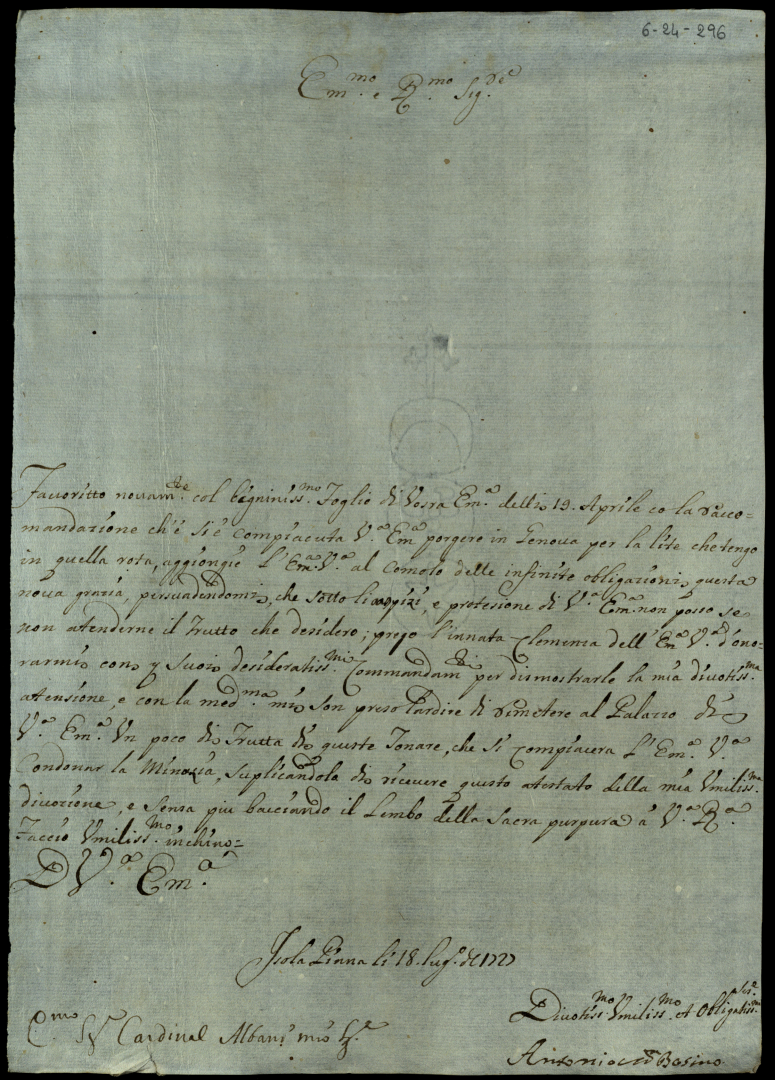 6-24-296
Em.mo e R.mo Sig.re
Favoritto novam.te col begniniss.mo Foglio di Vosra Em.a delli 19. Aprile co la racco-
mandazione ch'è si è compiacuta V.a Em.a porgere in Genova per la lite che tengo
in quella rota, aggiongie l'Em.a V.a al Comolo delle infinite obligazioni questa
nova grazia, persuadendomi, che sotto li auspizi, e protesione di V.a Em.a non posso se
non atenderne il frutto che desidero; prego l'innata Clemenza dell'Em.a V.a d'ono-
rarmi con suoi desideratiss.mi Commandam.ti per dismostrarle la mia divotiss.ma
atensione, e con la med.ma mi son preso l'ardire di rimetere al Palazzo di
V.a Em.a Un poco di Frutta di queste Tonare, che si Compiacera l'Em.a V.a
Condonar la Minozia, suplicandola di ricevere questo atestato della mia Umiliss.ma
divozione, e sensa piu bacciando il Lembo della Sacra purpura à V.a R.a
Faccio Umiliss.mo inchino=
D V.a Em.a
Isola Pianna li 18. lug.o 1727
Divotiss.mo Umiliss.mo et Obligatiss.mo
E.mo Sig.r Cardinal Albani mio Sig.re
Antonio Bosino